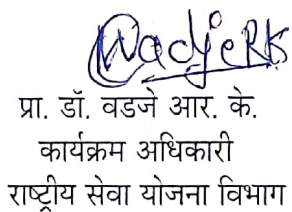 WadjeRK
प्रा. डॉ. वडजे आर. के.
कार्यक्रम अधिकारी
राष्ट्रीय सेवा योजना विभाग